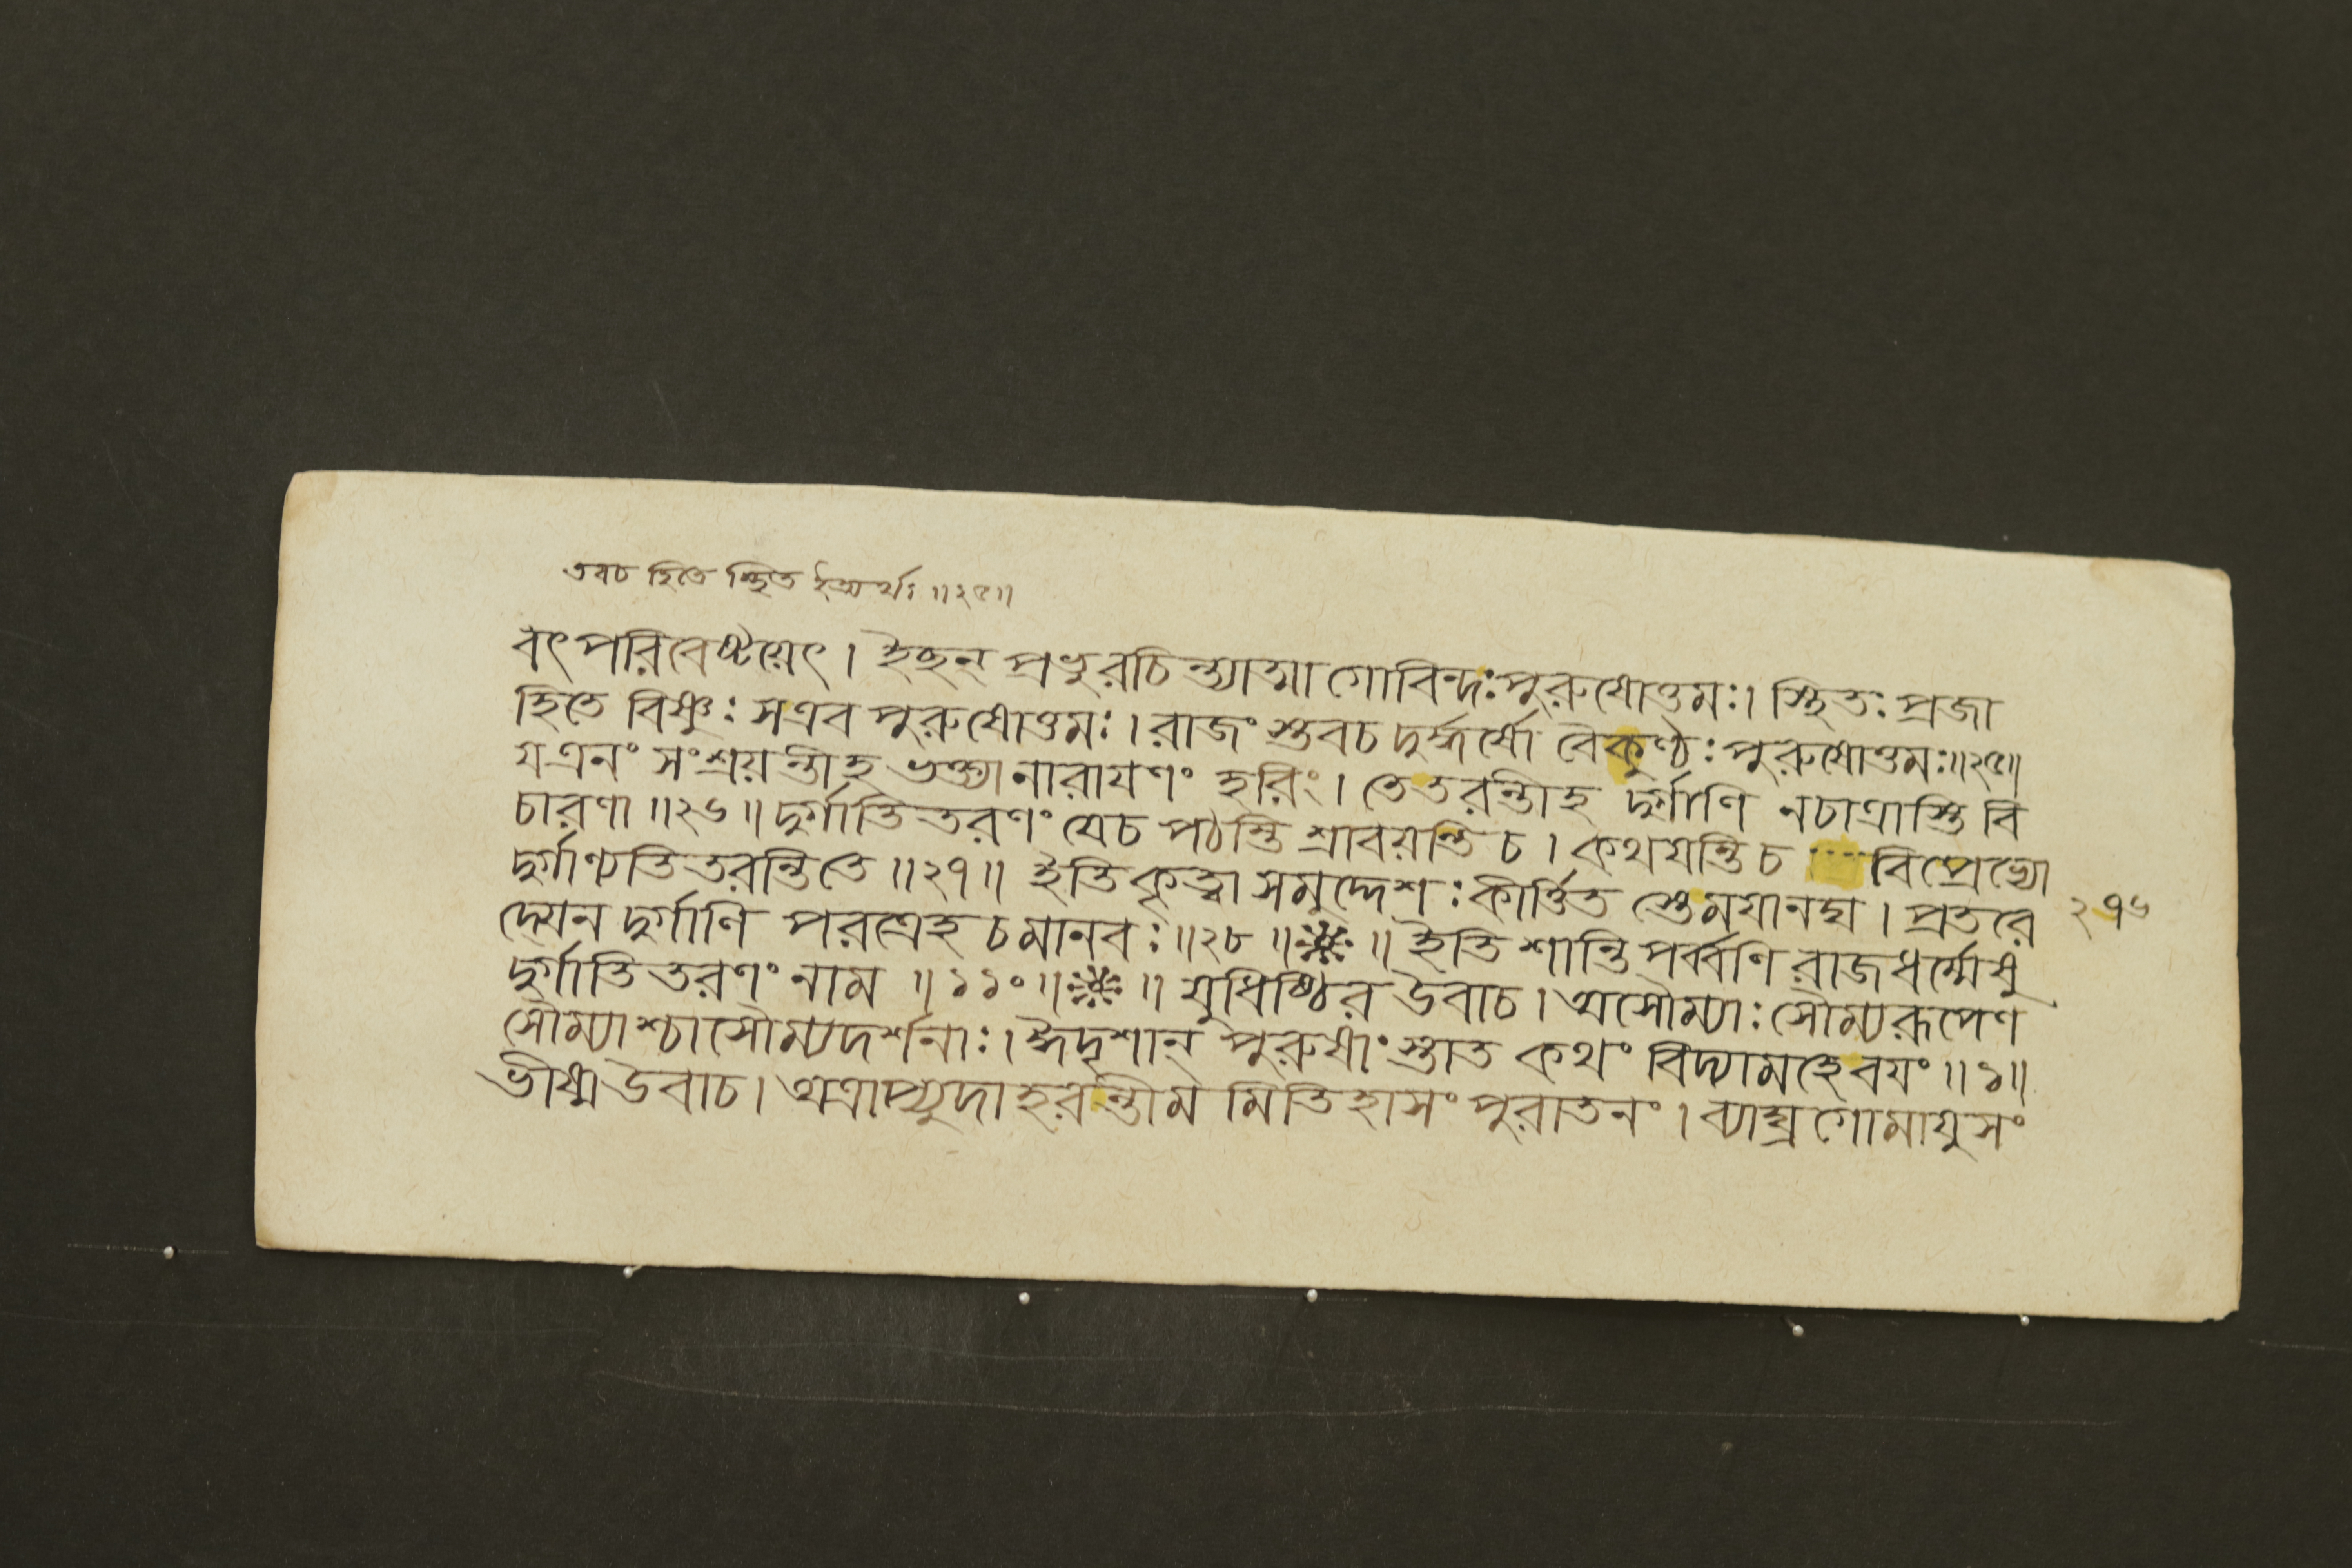 তবচ হিতে স্থিত ইত্যর্থঃ ॥২৫॥
বৎপরিবেষ্টয়েৎ । ইছন্ প্রভুরচিন্ত্যাত্মা গোবিন্দঃ পুরুষোত্তমঃ । স্থিতঃ প্রজা
হিতে বিষ্ণুঃ সএব পুরুষোত্তমঃ । রাজং স্তবচ দুর্দ্ধর্ষো বৈকুণ্ঠঃ পুরুষোত্তমঃ ॥২৫॥
যএনং সংশ্রয়ন্তীহ ভক্ত্যা নারাযণং হরিং । তেতরন্তীহ দুর্গাণি নচাত্রাস্তি বি
চারণা ॥২৬॥ দুর্গাতিতরণং যেচ পঠন্তি শ্রাবয়ন্তি চ । কথযন্তি চ বিপ্রেভ্যো
দুর্গাণ্যতিতরন্তিতে ॥২৭॥ ইতিকৃত্বা সমুদ্দেশঃ কীর্ত্তিত স্তেময়ানঘ । প্রতরে
দ্যেন দুর্গাণি পরত্রেহ চমানবঃ ॥২৮॥ ॥ ইতি শান্তি পর্ব্বণি রাজধর্ম্মেষু
দুর্গাতিতরণং নাম ॥১১০॥ ॥ যুধিষ্ঠির উবাচ । অসৌম্যাঃ সৌম্যরূপেণ
সৌম্যাশ্চাসৌম্যদর্শনাঃ । ঈদৃশান্ পুরুষাং স্তাত কথং বিদ্যামহেবযং ॥১॥
ভীষ্ম উবাচ । অত্রাপ্যুদাহরন্তীম মিতিহাসং পুরাতনং । ব্যাঘ্র গোমাযুসং
২৭৬